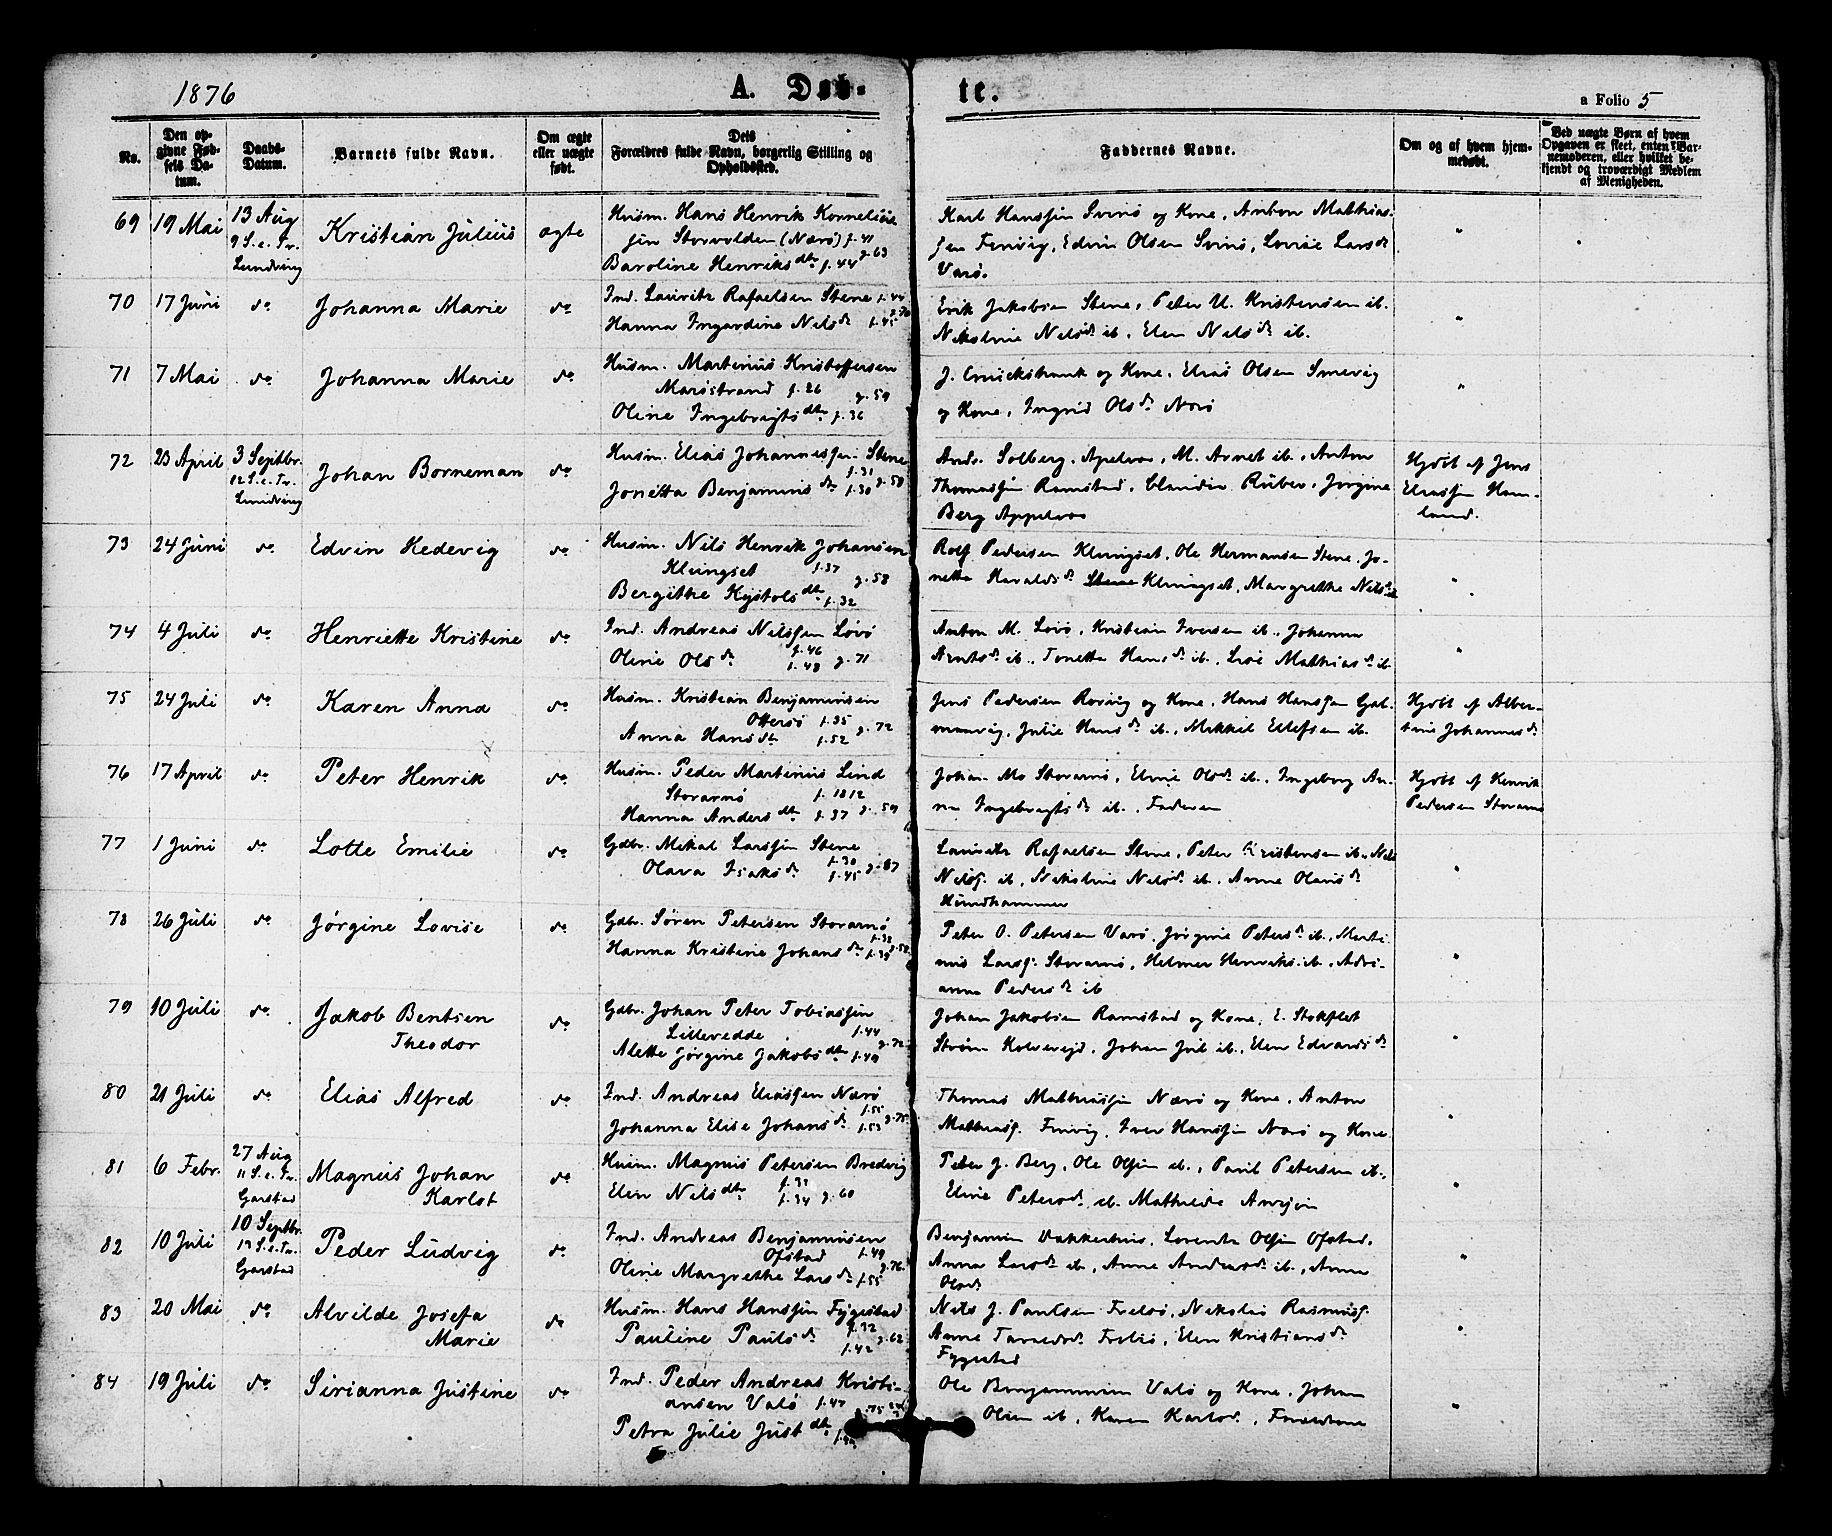 1876
A. Døb-
te.
a Folio 5
No.
Den op-
givne Fød-
sels Da-
tum.
Daabs-
Datum.
Barnets fulde Navn.
Om ægte
eller uægte
født.
Dets
Forældres fulde Navn, borgerlig Stilling og
Opholdssted.
Faddernes Navne.
Om og af hvem hjem-
medøbt.
Ved uægte Børn af hvem
Opgaven er skeet, enten Bar-
nemoderen, eller hvilket be-
kjendt og troværdigt Medlem
af Menigheden.
69 19 Mai
13 Aug
9 S. e. Tr.
Lundring
Kristian Julius
ægte
Husm. Hans Henrik Kornelius
sen Storvolden (Nærø) f. 41
Baroline Henriksdtr f. 44 g. 63
Karl Hanssen Svinø og Kone, Anton Mathias-
sen Finvig, Edvin Olsen Svinø, Lovise Larsdr
Varø.
"
70 17 Juni do
Johanna Marie
do
Ind. Lauritz Rafaelsen Stene f. 44
Hanna Ingardine Nilsdr f. 45 g. 70
Erik Jakobsen Stene, Peter U. Kristensen ib.
Nikoline Nilsdr ib, Elen Nilsdr ib.
"
71 7 Mai do
Johanna Marie
do
Husm. Martinus Kristoffersen
Marøstrand f. 26
g. 59
Oline Ingebrigtsdtr f. 36
J. Cruickshank og Kone, Elias Olsen Smevig
og Kone, Ingrid Olsdr Nærø
"
72 23 April
3 Septbr.
12 S. e. Tr.
Lundring
Johan Borneman
do
Husm. Elias Johannessen Stene
f. 31
Jonetta Benjaminsdr f. 30 g. 58
Andr. Solberg, Apelvær, M. Arnet ib, Anton
Thomassen Ramstad, Claudia Ruber, Jørgine
Berg Appelvær
Hjdøbt af Jens
Eliassen Ham-
land.
73 24 Juni do
Edvin Hedevig
do
Husm. Nils Henrik Johansen
Klungset f. 37
g. 58
Bergithe Kjstolsdtr f. 32
Rolf Pedersen Klungset, Ole Hermansen Stene, Jo-
netta Haraldsdr Klungset, Margrethe Nilsdr
"
74 4 Juli do
Henriette Kristine
do
Ind. Andreas Nilssen Løvø
f. 46
Oline Olsdr f. 48 g. 71
Anton M. Løvø, Kristian Iversen ib., Johanna
Arntsdr ib., Tonetta Hansdr ib., Lise Mathiasdr ib
"
75 24 Juli do
Karen Anna
do
Husm. Kristian Benjaminsen
Ottersø f. 35
Anna Hansdtr f. 52 g. 72
Jens Pedersen Rørvig og Kone, Hans Hanssen Gal-
manvig, Julie Hansdr ib., Mikkel Ellefsen ib.
Hjdøbt af Alber-
tine Johannesdr
76 17 April do
Peter Henrik
do
Husm. Peder Martinus Lind
Storarnø f. 1812
Hanna Andersdtr f. 37 g. 59
Johan Mo Storarnø, Eline Olsdr ib., Ingeborg An-
na Ingebrigtsdr ib., Faderen
Hjdøbt af Henrik
Pedersen Storarnø
77 1 Juni do
Lotte Emilie
do
Gdbr. Mikal Larssen Stene
f. 30
Olava Isaksdr f. 45 g. 67
Lauritz Rafaelsen Stene, Peter Kristensen ib., Nils
Nilss. ib, Nikoline Nilsdr ib., Anne Olausdr
Hundhammer
"
78 26 Juli do
Jørgine Lovise
do
Gdbr. Søren Petersen Storarnø
f. 32
Hanna Kristine Johansdr f. 35 g. 58
Peter O. Petersen Varø, Jørgine Petersdr ib., Marti
nus Larss. Storarnø, Helmer Henriks. ib., Adri-
anna Pedersdr ib
"
79 10 Juli do
Jakob Bentsen
Theodor
do
Gdbr. Johan Peter Tobiassen
Lillevedde f. 44
g. 72
Alette Jørgine Jakobsdtr f. 49
Johan Jakobsen Ramstad og Kone, E. Stokflet
Strøm Kolvereid, Johan Juel ib., Elen Edvardsdr
"
80 21 Juli do
Elias Alfred
do
Ind. Andreas Eliassen Nærø
f. 55
Johanna Elise Johansdr f. 53 g. 75
Thomas Mathiassen Nærø og Kone, Anton
Mathiass. Finvig, Iver Hanssen Nærø og Kone
"
81 6 Febr.
27 Aug
11 S. e. Tr.
Garstad
Magnus Johan
Karlot
do
Husm. Magnus Petersen Bredvig
f. 31
Elen Nilsdtr f. 34 g. 60
Peter J. Berg, Ole Olsen ib., Paul Petersen ib.,
Eline Petersdr ib. Mathilde
"
82 10 Juli
10 Septbr.
13 S. e. Tr.
Garstad
Peder Ludvig
do
Ind. Andreas Benjaminsen
Ofstad f. 49
g. 76
Oline Margrethe Larsdr f. 55
Benjamin Bakkerhus, Lorents Olsen Ofstad,
Anna Larsdr ib., Anne Andersdr ib., Anna
Olsdr
"
83 20 Mai do
Alvilde Josefa
Marie
do
Husm. Hans Hanssen Fygestad
f. 32
Pauline Paulsdr g. 62
f. 42
Nils J. Paulsen Frelsø, Nikolai Rasmuss.
Anne Frelsø, Elen Kristiansdr
Fygestad
"
84 19 Juli do
Sirianna Justine
do
Ind. Peder Andreas Kristi-
ansen Valø f. 47
Petra Julie Justdtr
Ole Benjaminsen Valø og Kone, Johan
Olsen ib, Karen Karlsdr, Forældrene
"